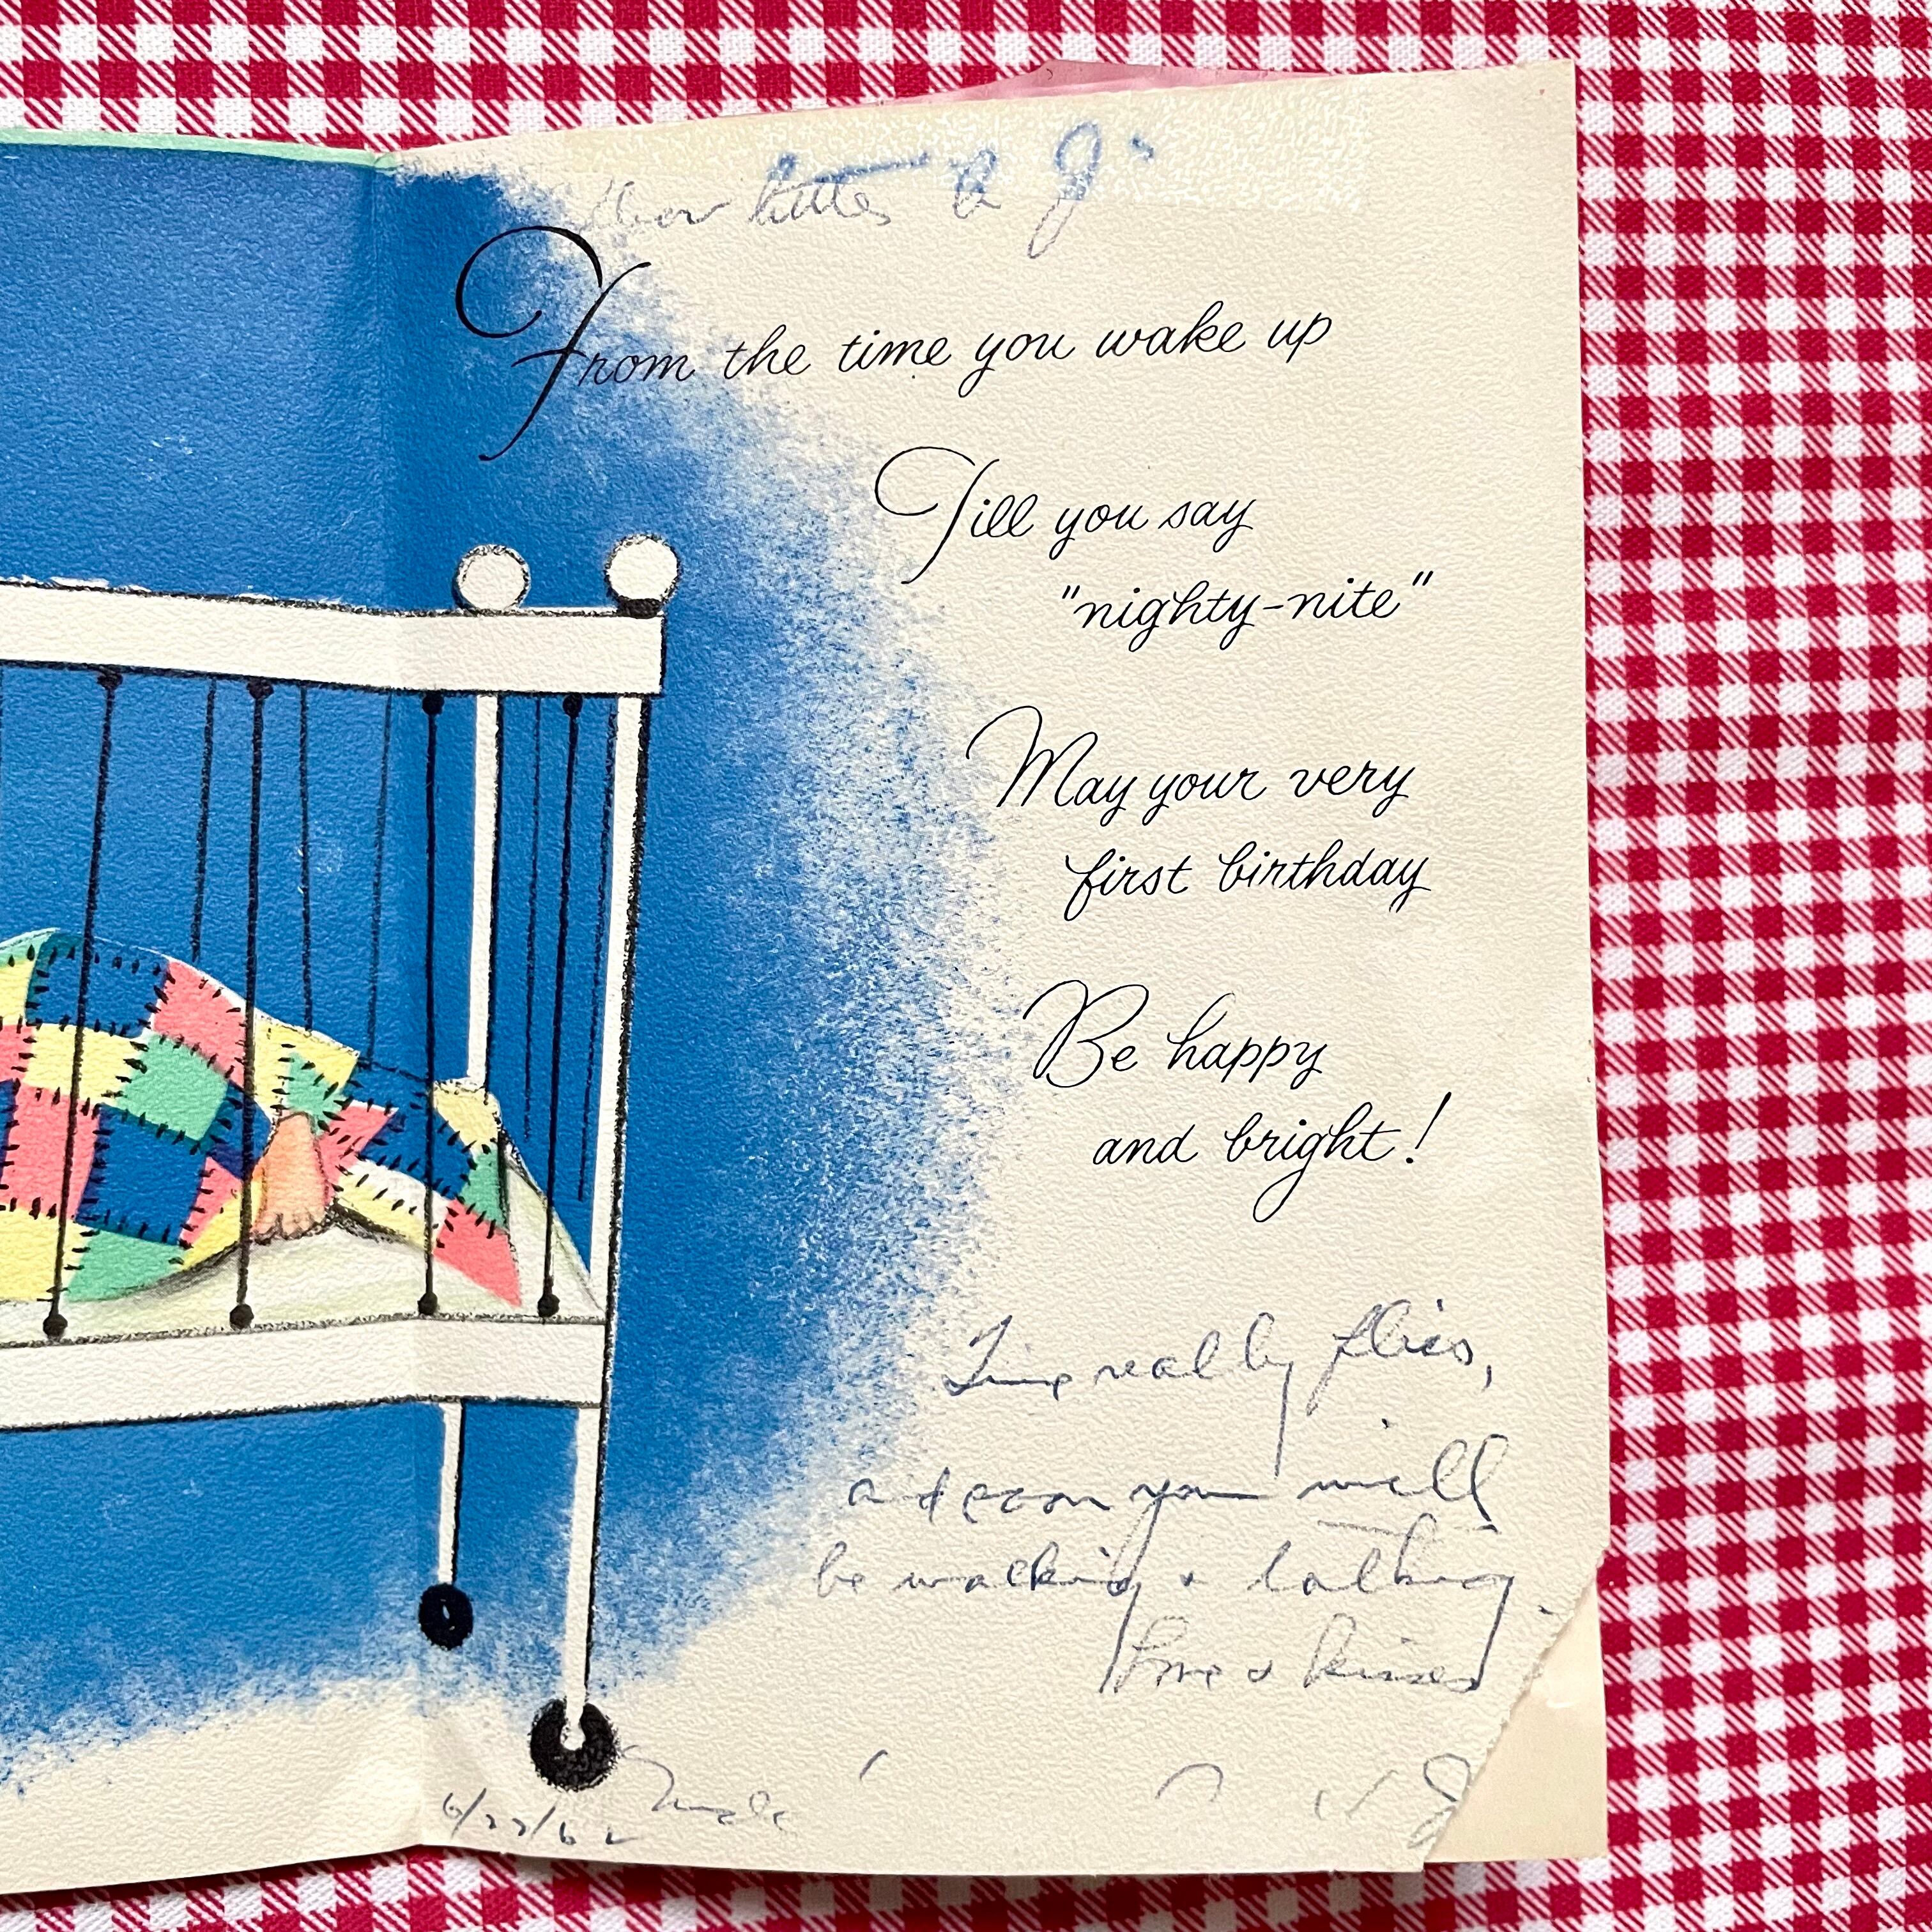 From the time you wake up
Till you say
"nighty-nite"
May your very
first birthday
Be happy
and bright!
Time really flies,
and soon you will
be walking & talking.
Love & kisses
6/22/62